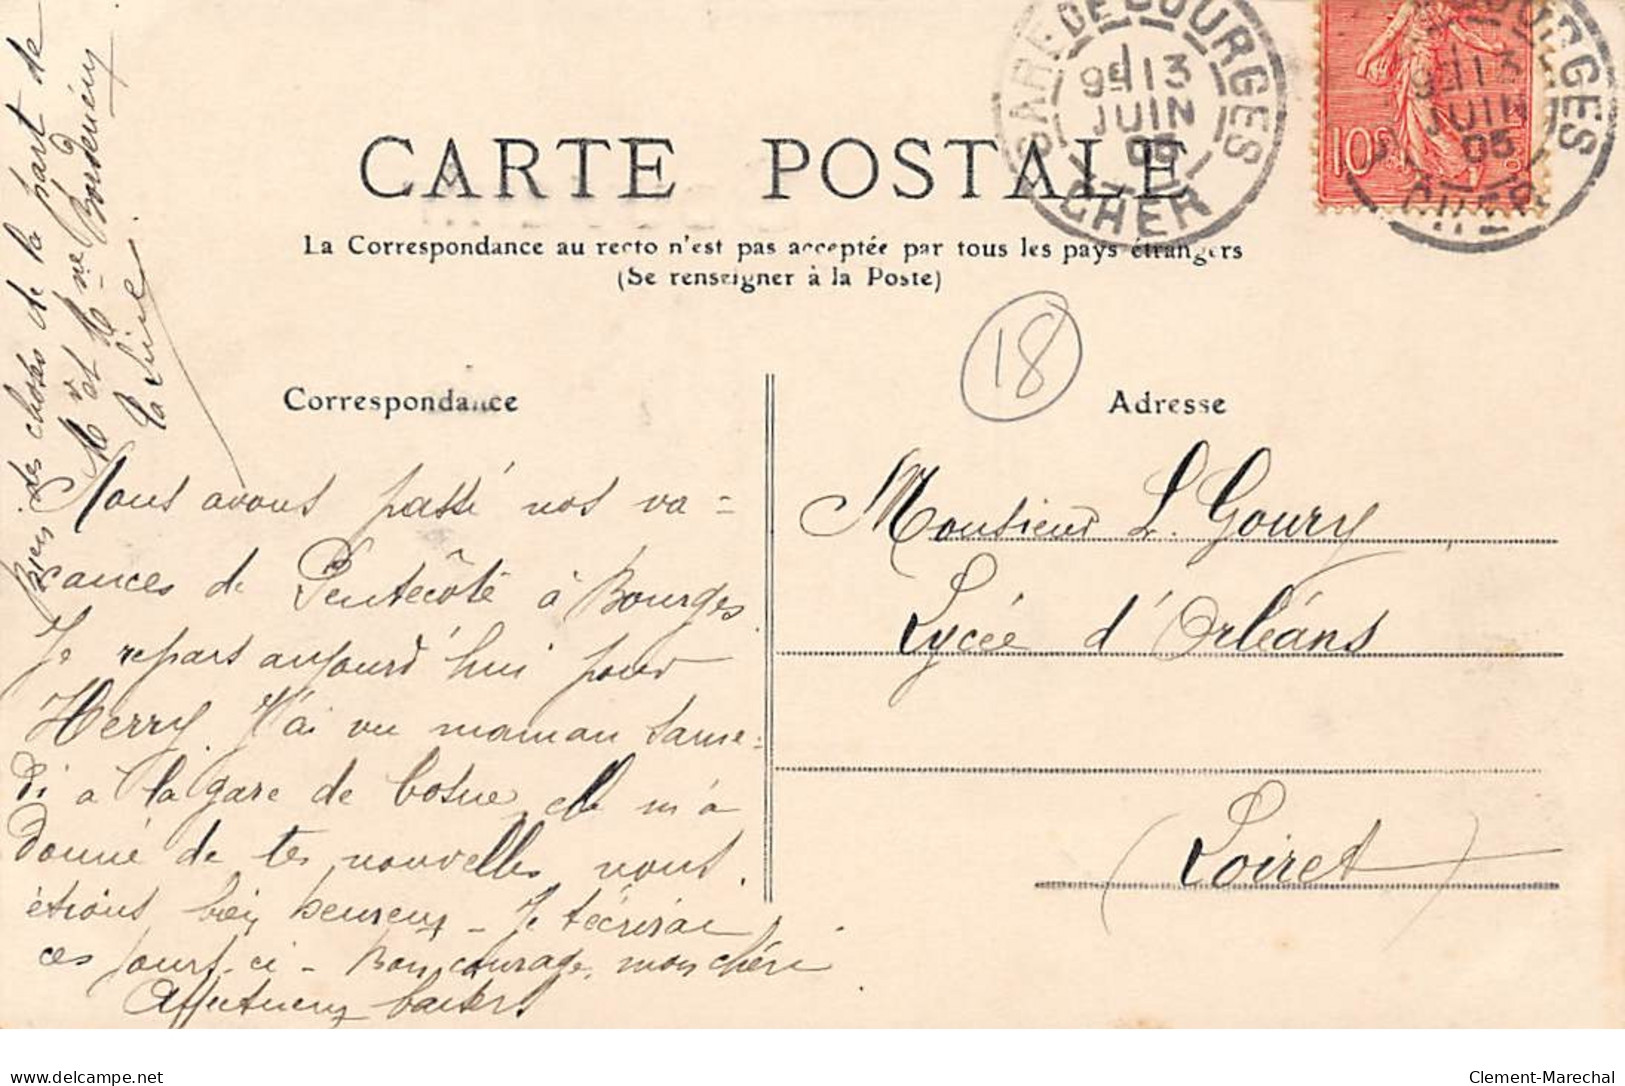 GARE DE BOURGES
9E 13
JUIN
05
CHER
10c
CARTE POSTALE
La Correspondance au recto n'est pas acceptée par tous les pays étrangers
(Se renseigner à la Poste)
18
Correspondance
Adresse
Nous avons passé nos va=
cances de Pentecôte à Bourges.
Je repars aujourd'hui pour
Herry. J'ai vu maman same=
di à la gare de Cosne, elle m'a
donné de tes nouvelles, nous
étions bien heureux - Je t'écrirai
ces jours-ci - Bon courage, mon chéri
Affectueux baisers
Bien des choses de la part de
Mr et Mme
Monsieur L. Goury
Lycée d'Orléans
(Loiret)
delcampe.net
Clement-Marechal